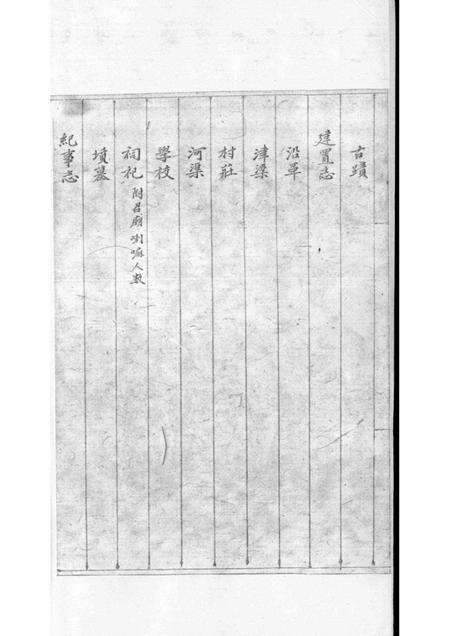 古蹟
建置志
沿革
津梁
村莊
河渠
學校
祠祀 附召廟喇嘛人数
墳墓
紀事志